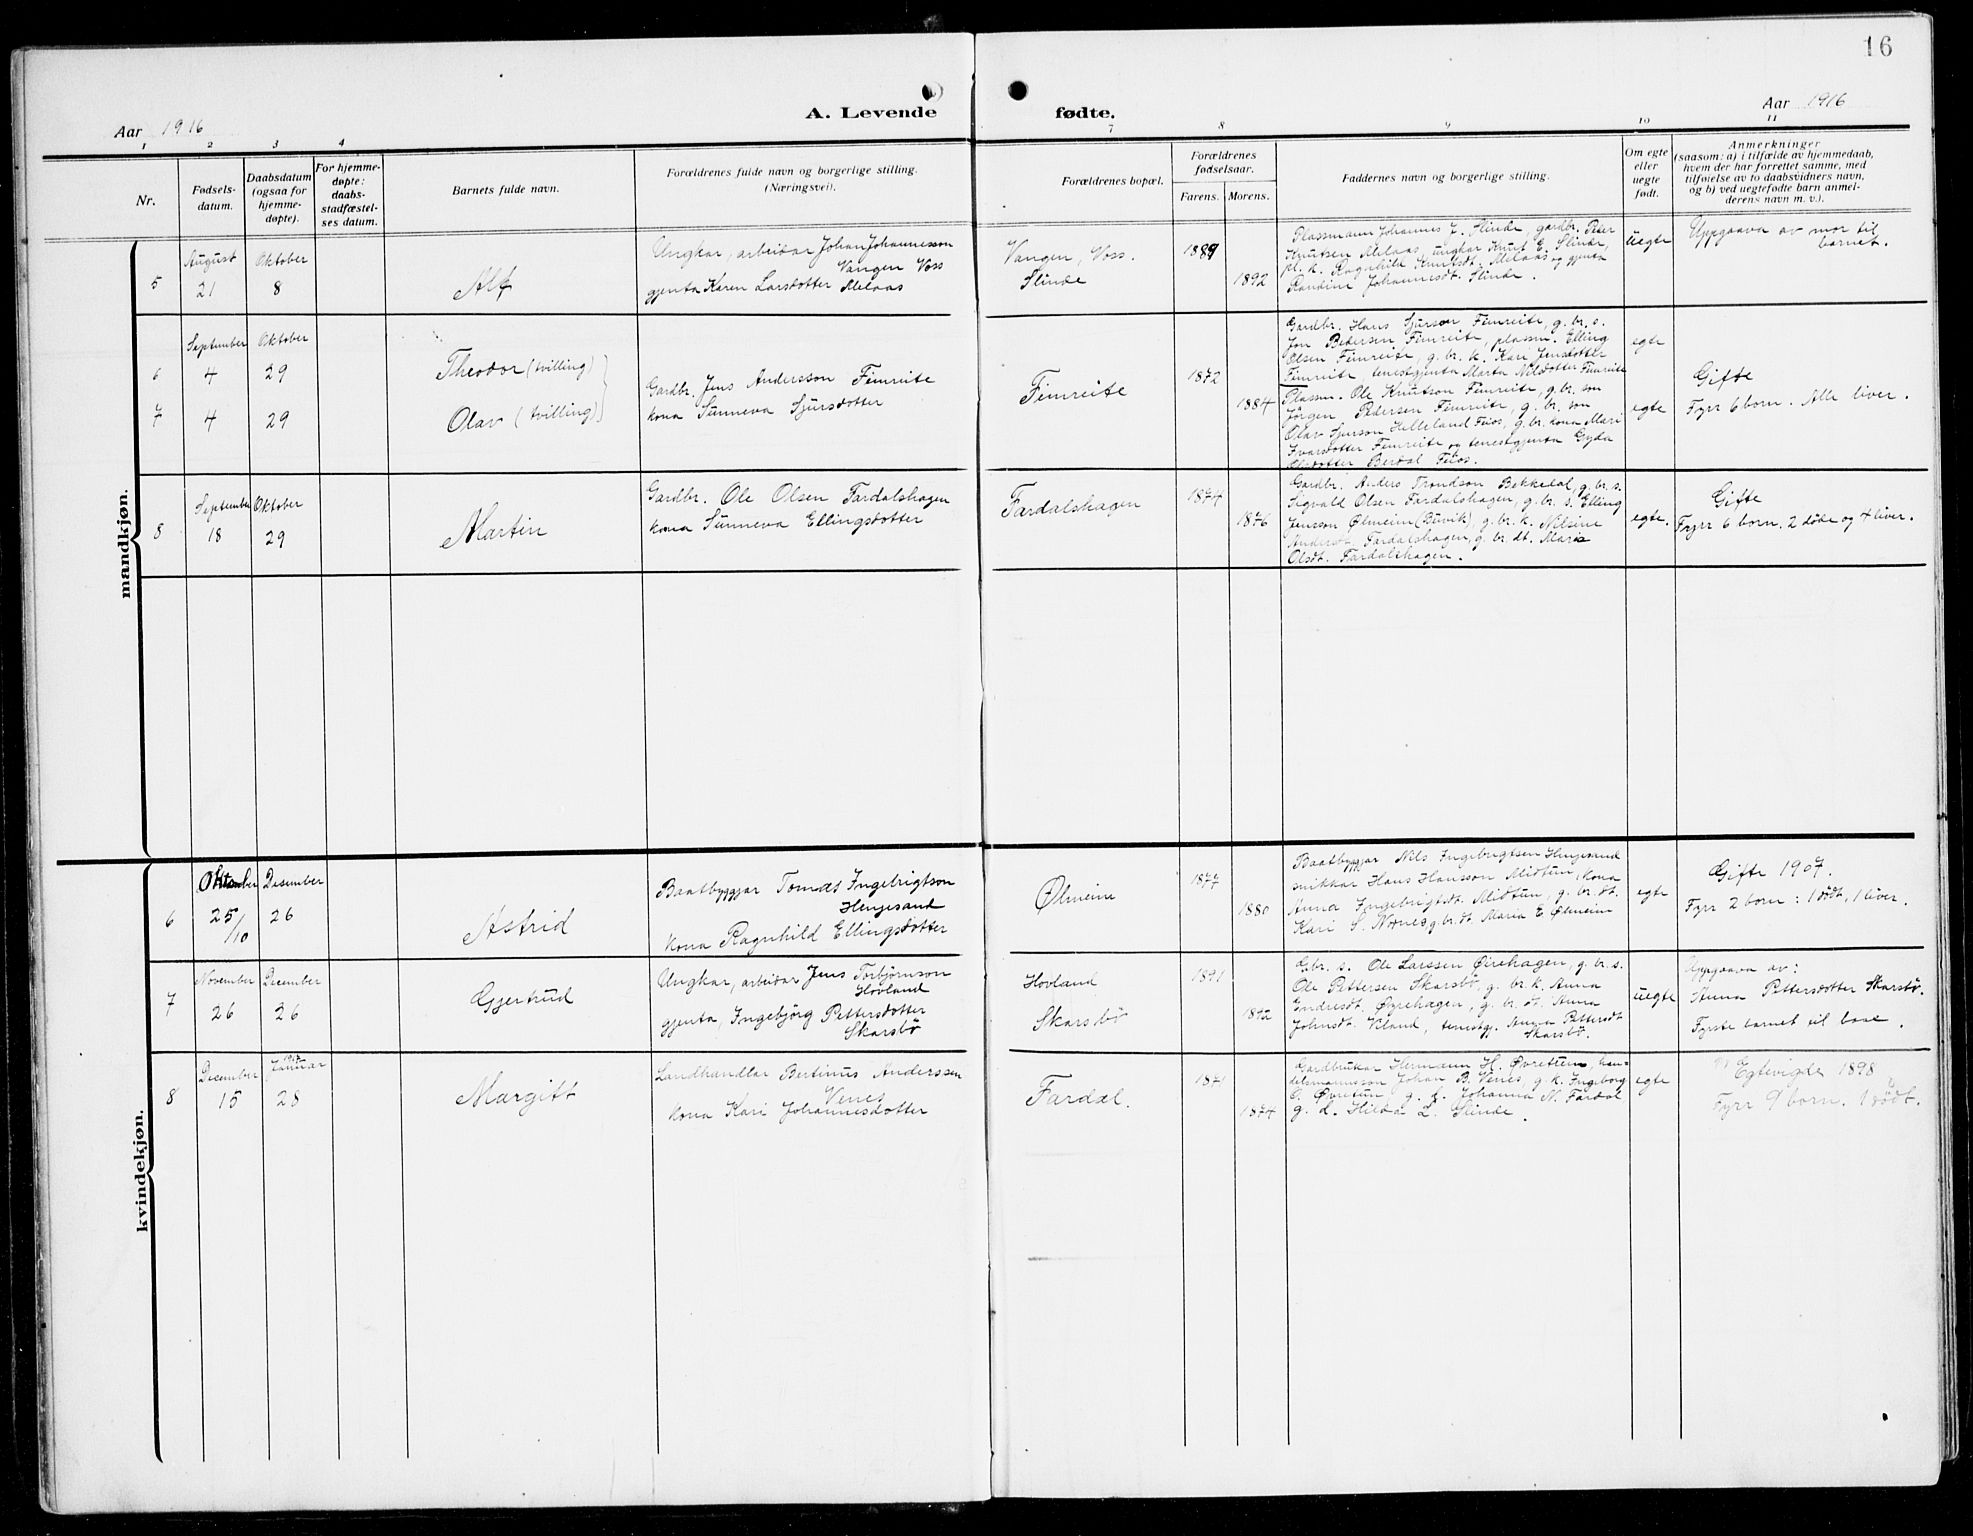 16
Aar 1916
A. Levende fødte.
Aar 1916
1 2 3 4 7 8 9 10 11
Nr.
Fødsels-
datum.
Daabsdatum
(ogsaa for
hjemme-
døpte).
For hjemme-
døpte:
daabs-
stadfæstel-
ses datum.
Barnets fulde navn.
Forældrenes fulde navn og borgerlige stilling.
(Næringsvei).
Forældrenes bopæl.
Forældrenes
fødselsaar.
Farens. Morens.
Faddernes navn og borgerlige stilling.
Om egte
eller
uegte
født.
Anmerkninger
(saasom: a) i tilfælde av hjemmedaab,
hvem der har forrettet samme, med
tilføielse av to daabsvidners navn,
og b) ved uegtefødte barn anmel-
derens navn m. v.).
mandkjøn.
5
August
21
Oktober
8
Alf
Ungkar, arbeidar Johan Johannesson
Vangen Voss
gjenta Karen Larsdotter Melaas
Vangen, Voss.
Slinde
1889
1892
Plassmann Johannes J. Slinde, gardbr. Peder
Knutsen Melaas, ungkar Knut E. Slinde,
pl. k. Ragnhild Knutsdt. Melaas og gjenta
Randina Johannesdt. Slinde.
uegte
Uppgaava av mor til
barnet.
6
September
4
Oktober
29
Theodor (tvilling)
7
4
29
Olav (tvilling)
Gardbr. Jens Andersson Fimreite
kona Sunneva Sjursdotter
Fimreite
1872
1884
Gardbr. Hans Sjurson Fimreite, g. br. s.
Jon Pedersen Fimreite, plassm. Elling
Olsen Fimreite, g. br. k. Kari Jensdotter
Fimreite, tenestgjenta Marta Nilsdotter Fimreite
Plassm. Ole Knutson Fimreite, g. br. son
Jörgen Pedersen Fimreite, g. br. son
Olav Sjurson Helleland Feios, g. br. kona Mari
Ivarsdotter Fimreite og tenestgjenta Gyda
Olsdotter Berdal Feios.
egte
egte
Gifte
Fyrr 6 born. Alle liver.
8
September
18
Oktober
29
Martin
Gardbr. Ole Olsen Fardalshagen
kona Sunneva Ellingsdotter
Fardalshagen
1874
1876
Gardbr. Anders Trondson Bekkedal, g. br. s.
Sigvald Olsen Fardalshagen, g. br. s. Elling
Jensson Ølmeim (Buvik), g. br. k. Nilsine
Andersdt. Fardalshagen, g. br. dt. Maria
Olsdt. Fardalshagen.
egte.
Gifte
Fyrr 6 born, 2 döde og 4 liver.
kvindekjøn.
6
Oktober
25/10
Desember
26
Astrid
Baatbyggjar Tomas Ingebrigtson
Henjesand
kona Ragnhild Ellingsdotter
Ølmeim
1877
1880
Baatbyggjar Nils Ingebrigtsen Henjesand
snikkar Hans Hansson Midtun, kona
Anna Ingebrigtsdt. Midtun, g. br. dt.
Kari S. Nornes g. br. dt. Maria E Ølmeim
egte
Gifte 1907.
Fyrr 2 born: 1 dödt, 1 liver.
7
November
26
December
26
Gjertrud
Ungkar, arbeidar Jens Torbjørnson
Hovland
gjenta, Ingebjörg Pettersdotter
Skarsbö
Hovland
Skarsbö
1891
1892
Gbr. s. Ole Larssen Øirehagen, g. br. s.
Ole Pettersen Skarsbö, g. br. k. Anna
Endresdt. Øyrehagen, g. br. dt. Anna
Johnsdt. Kland, tenestg. Anna Pettersdt
Skarsbö.
uegte
Uppgaava av:
Anna Pettersdotter Skarsbö.
Fyrste barnet til baae.
8
December
15
1917
Januar
28
Margitt
Landhandlar Bertinus Anderssen
Venes
kona Kari Johannesdotter
Fardal.
1871
1874
Gardbrukar Hermann H. Øvretun, han-
delsmannsson Johan B. Venes, g. k. Ingeborg
O. Øvretun, g. d. Johanna N. Fardal
g. d. Hilda L. Slinde.
egte
Egtevigde 1898
Fyrr 9 born. 1 dödt.